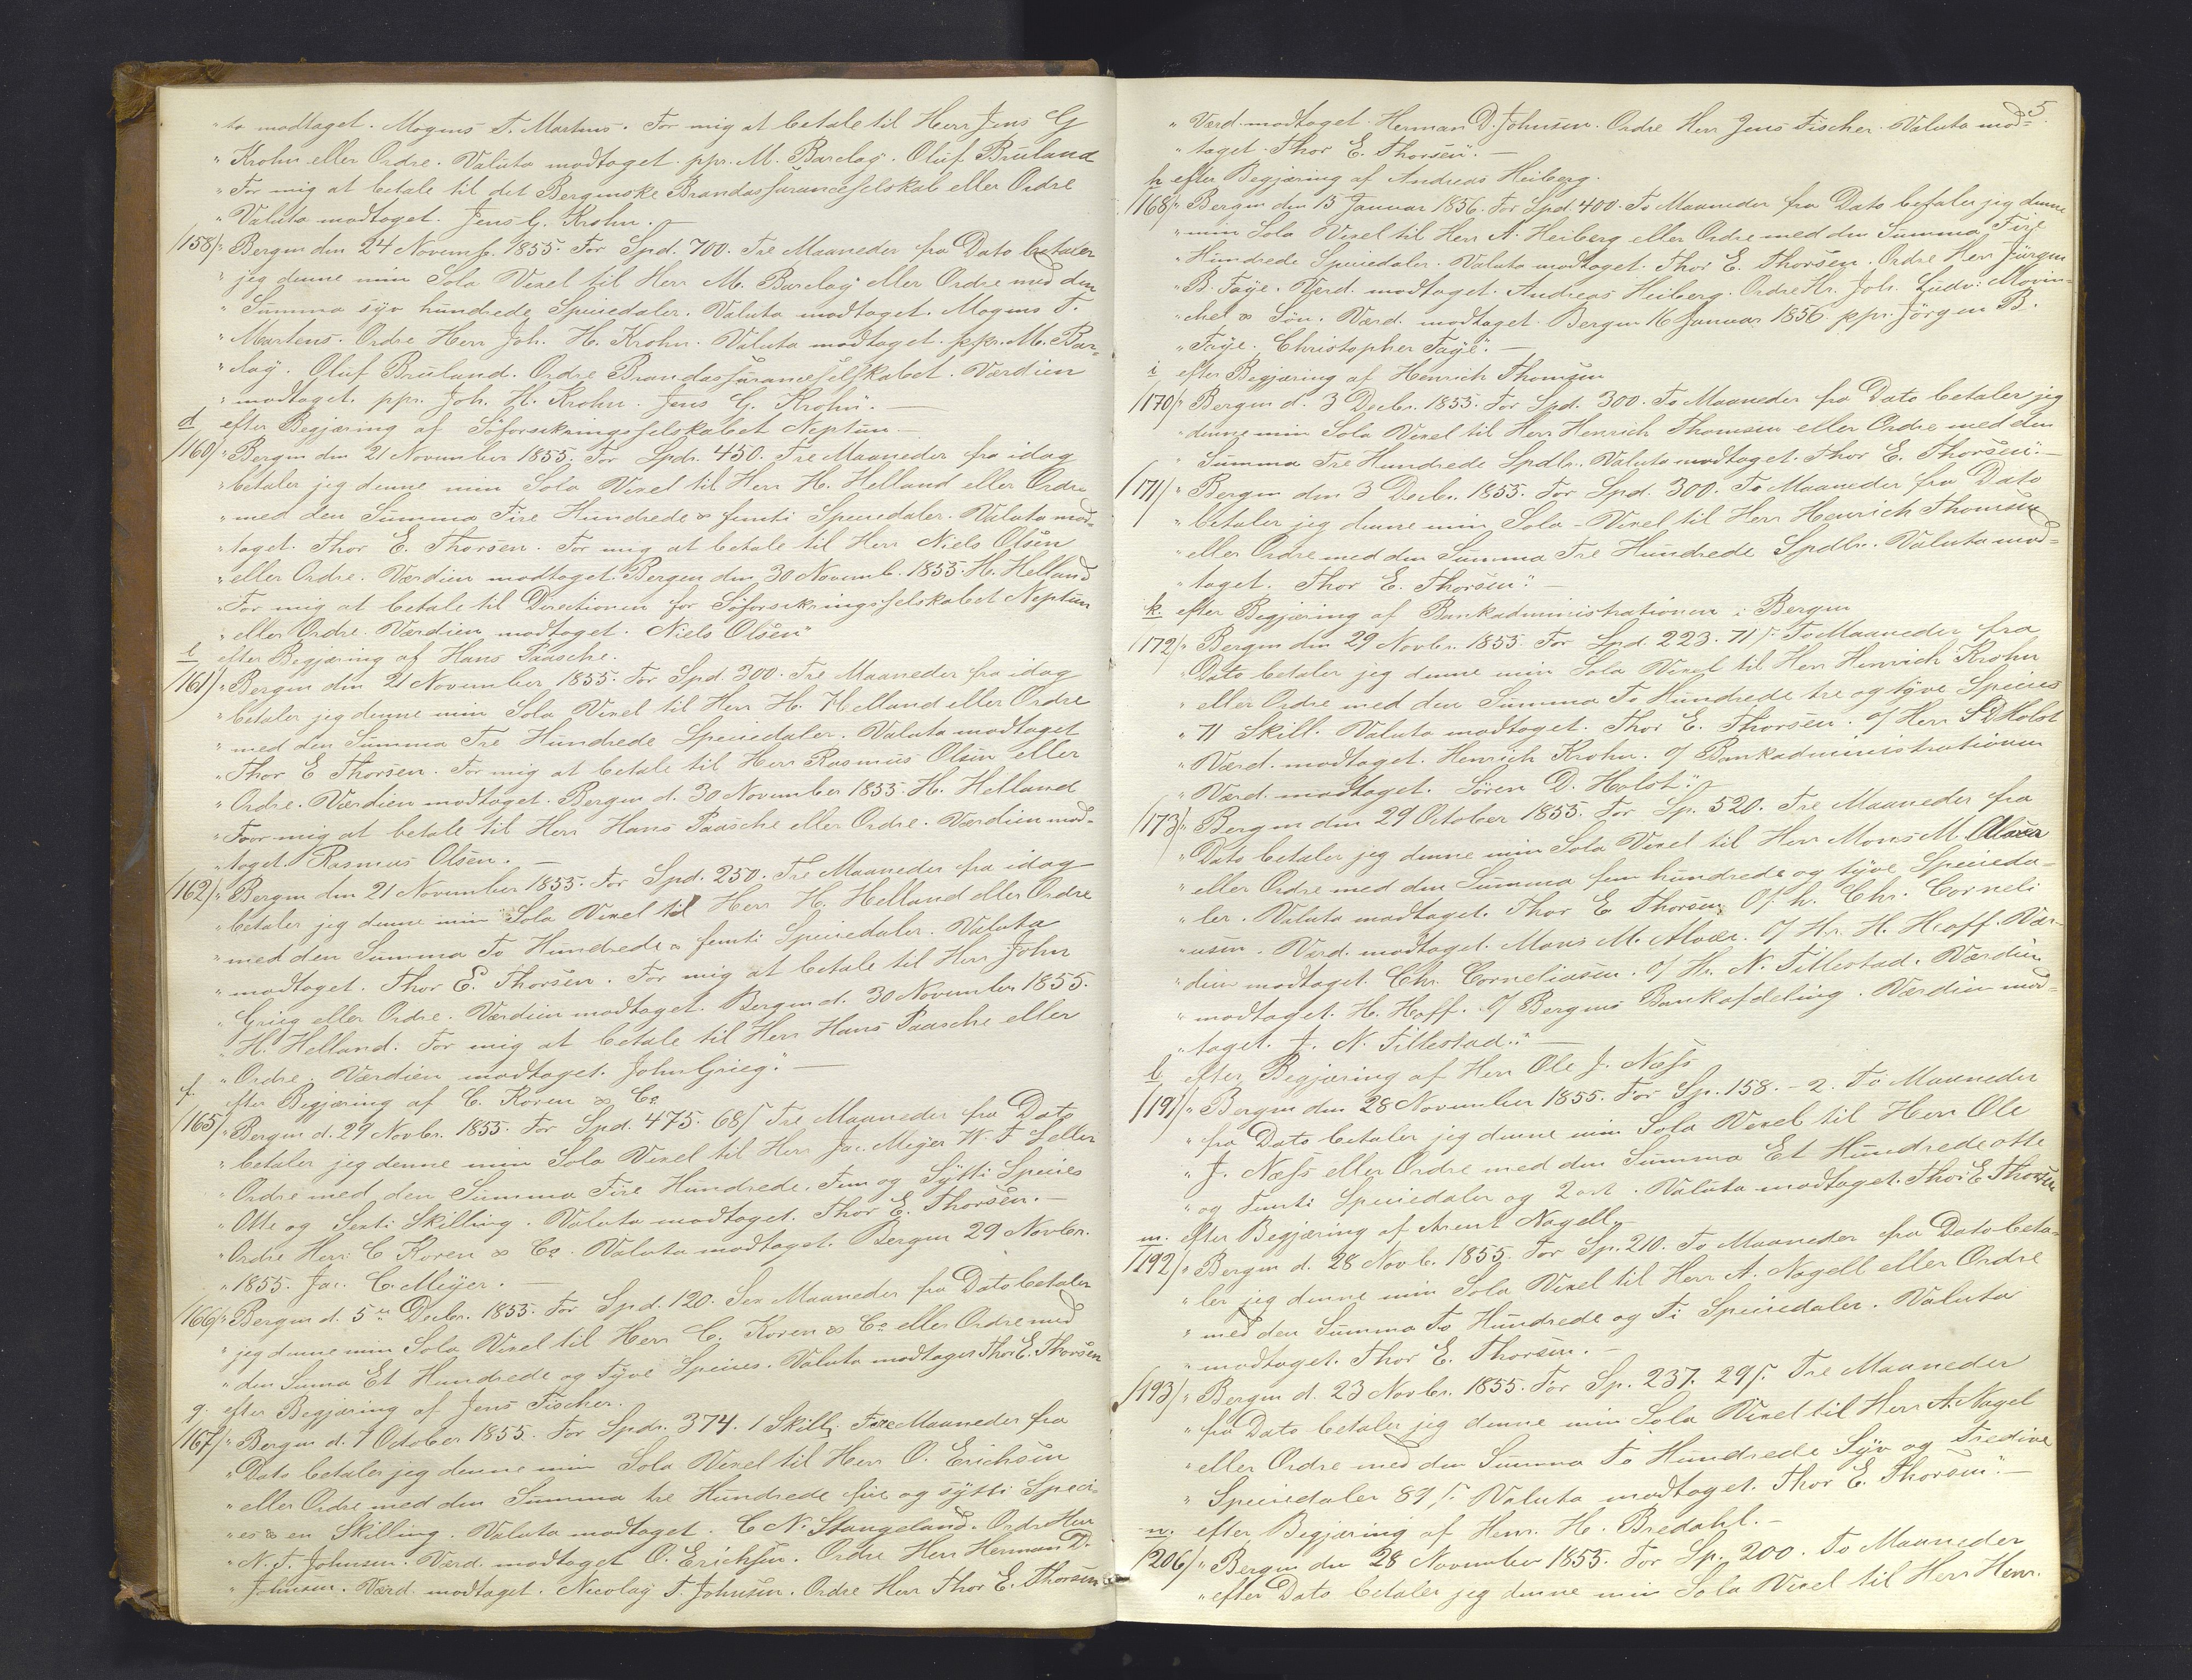 "ta modtaget. Mogens T. Martens. For mig at betale til Herr Jens G
"Krohn eller Ordre. Valuta modtaget. ppr. M. Barclay. Oluf Bruland
"For mig at betale til det Bergenske Brandassuranceselskab eller Ordre
"Valuta modtaget. Jens G. Krohn.
/158/ "Bergen den 24 Novemb. 1855. For Spd. 700. Tre Maaneder fra Dato betaler
"jeg denne min Sola Vexel til Herr M. Barclay eller Ordre med den
"Summa syv hundrede Speciedaler. Valuta modtaget. Mogens T.
"Martens. Ordre Herr Joh. H. Krohn. Valuta modtaget. ppr. M. Bar-
"clay. Oluf Bruland. Ordre Brandassuranceselskabet. Værdien
"modtaget. ppr. Joh. H. Krohn. Jens G. Krohn".—
d efter Begjæring af Søforsikringsselskabet Neptun
/160/ "Bergen den 21 November 1855. For Spdr. 450. Tre Maaneder fra idag
"betaler jeg denne min Sola Vexel til Herr H. Helland eller Ordre
"med den Summa Fire Hundrede & femti Speciedaler. Valuta mod-
"taget. Thor E. Thorsen. For mig at betale til Herr Niels Olsen
"eller Ordre. Værdien modtaget. Bergen den 30 Novemb. 1855. H. Helland
"For mig at betale til Directionen for Søforsikringsselskabet Neptun
"eller Ordre. Værdien modtaget. Niels Olsen"
e efter Begjæring af Hans Paasche.
/161/ "Bergen den 21 November 1855. For Spd. 300. Tre Maaneder fra idag
"betaler jeg denne min Sola Vexel til Herr H. Helland eller Ordre
"med den Summa Tre Hundrede Speciedaler. Valuta modtaget
"Thor E Thorsen. For mig at betale til Herr Rasmus Olsen eller
"Ordre. Værdien modtaget. Bergen d. 30 November 1855. H. Helland
"For mig at betale til Herr Hans Paasche eller Ordre. Værdien mod-
"taget. Rasmus Olsen.—
/162/ "Bergen den 21 November 1855. For Spd. 250. Tre Maaneder fra idag
"betaler jeg denne min Sola Vexel til Herr H. Helland eller Ordre
"med den Summa To Hundrede & femti Speciedaler. Valuta
"modtaget. Thor E. Thorsen. For mig at betale til Herr John
"Grieg eller Ordre. Værdien modtaget. Bergen d. 30 November 1855.
"H. Helland. For mig at betale til Herr Hans Paasche eller
"Ordre. Værdien modtaget. John Grieg".—
f. efter Begjæring af C. Koren & Co.
/165/ "Bergen d. 29 Novbr. 1855. For Spd. 475. 68ſ Tre Maaneder fra Dato
"betaler jeg denne min Sola Vexel til Herr Jac. Meyer W. F eller
"Ordre med den Summa Fire Hundrede, Fem og Sytti Species
"Otte og Sexti Skilling. Valuta modtaget. Thor E. Thorsen.—
"Ordre Herr C Koren & Co. Valuta modtaget. Bergen 29 Novbr.
"1855. Jac. C. Meyer.—
/166/ "Bergen d. 5te Decbr. 1855. For Spd. 120. Sex Maaneder fra Dato betaler
"jeg denne min Sola Vexel til Herr C. Koren & Co eller Ordre med
"den Suma Et Hundrede og Tyve Species. Valuta modtaget Thor E. Thorsen
g. efter Begjæring af Jens Fischer.
/167/ "Bergen d. 1 October 1855. For Spdr. 374. 1 Skill; Tre Maaneder fra
"Dato betaler jeg denne min Sola Vexel til Herr O. Erichsen
"eller Ordre med den Summa tre Hundrede fire og sytti Speci-
"es & en Skilling. Valuta modtaget. C N. Stangeland. Ordre Herr
"N. T. Johnsen. Værd. modtaget O. Erichsen. Ordre Herr Herman D.
"Johnsen. Værd. modtaget. Nicolay T. Johnsen. Ordre Herr Thor E. Thorsen
5.
"Værd. modtaget. Herman D. Johnsen. Ordre Herr Jens Fischer. Valuta mod=
"taget. Thor E. Thorsen".—
h efter Begjæring af Andreas Heiberg.
/168/ "Bergen den 15 Januar 1856. For Spd. 400. To Maaneder fra Dato betaler jeg denne
"min Sola Vexel til Herr A. Heiberg eller Ordre med den Summa Fire
"Hundrede Speciedaler. Valuta modtaget. Thor E. Thorsen. Ordre Herr Jürgen
"B. Faye. Værd. modtaget. Andreas Heiberg. Ordre Hr. Joh. Ludv. Mowin-
"ckel & Søn. Værd. modtaget. Bergen 16 Januar 1856. ppr. Jörgen B.
"Faye. Christopher Faye".—
i efter Begjæring af Henrich Thomsen
/170/ "Bergen d. 3 Decbr. 1855. For Spd. 300. To Maaneder fra Dato betaler jeg
"denne min Sola Vexel til Herr Henrich Thomsen eller Ordre med den
"Summa Tre Hundrede Spdlr. Valuta modtaget. Thor E. Thorsen".—
/171/ "Bergen den 3 Decbr. 1855. For Spd. 300. To Maaneder fra Dato
"betaler jeg denne min Sola-Vexel til Herr Henrich Thomsen
"eller Ordre med den Summa Tre Hundrede Spdlr. Valuta mod=
"taget. Thor E. Thorsen".—
k efter Begjæring af Bankadministrationen i Bergen
/172/ "Bergen den 29 Novbr. 1855. For Spd. 223. 71ſ. To Maaneder fra
"Dato betaler jeg denne min Sola Vexel til Herr Henrich Krohn
"eller Ordre med den Summa To Hundrede tre og tyve Species
"71 Skill. Valuta modtaget. Thor E. Thorsen. O/ Herr S D Holst
"Værd. modtaget. Henrich Krohn. O/ Bankadministrationen
"Værd. modtaget. Sören D. Holst".
/173/ "Bergen den 29 October 1855. For Sp. 520. Tre Maaneder fra
"Dato betaler jeg denne min Sola Vexel til Herr Mons M. Alvær
"eller Ordre med den Summa fem hundrede og tyve Specieda-
"ler. Valuta modtaget. Thor E Thorsen. O/ h. Chr. Corneli
"usen. Værd. modtaget. Mons M. Alvær. O/ Hr. H. Hoff. Vær-
"dien modtaget. Chr. Corneliusen. O/ Hr. N. Tillestad. Værdien
"modtaget. H. Hoff. O/ Bergens Bankafdeling. Værdien mod=
"taget. J. N. Tillestad".—
l efter Begjæring af Herr Ole J. Næss
/191/ "Bergen den 28 November 1855. For Sp. 158.-2. To Maaneder
"fra Dato betaler jeg denne min Sola Vexel til Herr Ole
"J. Næss eller Ordre med den Summa Et Hundrede otte
"og Femti Speciedaler og 2 ort. Valuta modtaget. Thor E Thorsen
m. efter Begjæring af Arent Nagell
/192/ "Bergen d. 28 Novb. 1855. For Sp. 210. To Maaneder fra Dato beta-
"ler jeg denne min Sola Vexel til Herr A. Nagell eller Ordre
"med den Summa To Hundrede og Ti Speciedaler. Valuta
"modtaget. Thor E. Thorsen.—
/193/ "Bergen d. 23 Novbr. 1855. For Sp. 237. 29ſ. Tre Maaneder
"fra Dato betaler jeg denne min Sola Vexel til Herr A. Nagel
"eller Ordre med den Summa To Hundrede Syv og Tredive
"Speciedaler 89ſ. Valuta modtaget. Thor E. Thorsen".—
n. efter Begjæring af Henr. H. Bredahl.—
/206/ "Bergen den 28 November 1855. For Sp. 200. To Maaneder
"efter Dato betaler jeg denne min Sola Vexel til Herr Henr.